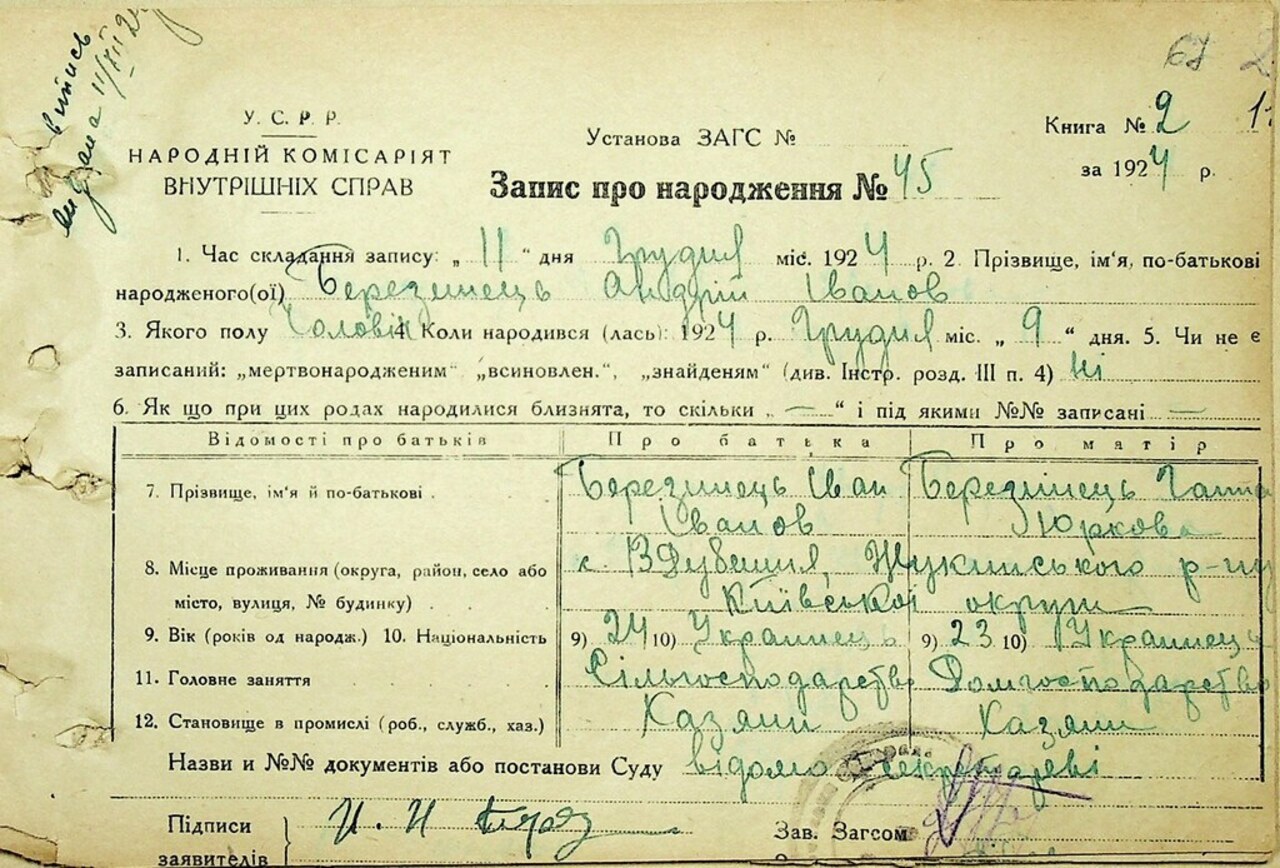 витись
видана 11/XII 24
67 2
У. С. Р. Р.
НАРОДНІЙ КОМІСАРІЯТ
ВНУТРІШНІХ СПРАВ
Установа ЗАГС №
Книга № 2
за 1924 р.
Запис про народження № 45
1. Час складання запису: „ 11 “ дня Грудня міс. 1924 р. 2. Прізвище, ім'я, по-батькові
народженого(ої) Березинець Андрій Іванов
3. Якого полу Чоловік 4. Коли народився (лась): 1924 р. Грудня міс. „ 9 “ дня. 5. Чи не є
записаний: „мертвонародженим“ „всиновлен.“, „знайденям“ (див. Інстр. розд. III п. 4) Ні
6. Як що при цих родах народилися близнята, то скільки „ — “ і під якими №№ записані —
Відомості про батьків Про батька Про матір
7. Прізвище, ім'я й по-батькові Березинець Іван Березинець Ганна
Іванов Юркова
8. Місце проживання (округа, район, село або с. В Дубешня, Жукинського р-ну
місто, вулиця, № будинку) Київської округи
9. Вік (років од народж.) 10. Національність 9) 24 10) Украинець 9) 23 10) Украинець
11. Головне заняття Сільгосподарство Домгосподарство
12. Становище в промислі (роб., служб., хаз.) Хазяин Хазяин
Назви и №№ документів або постанови Суду відомо секретареві
Підписи
заявителів
Зав. Загсом